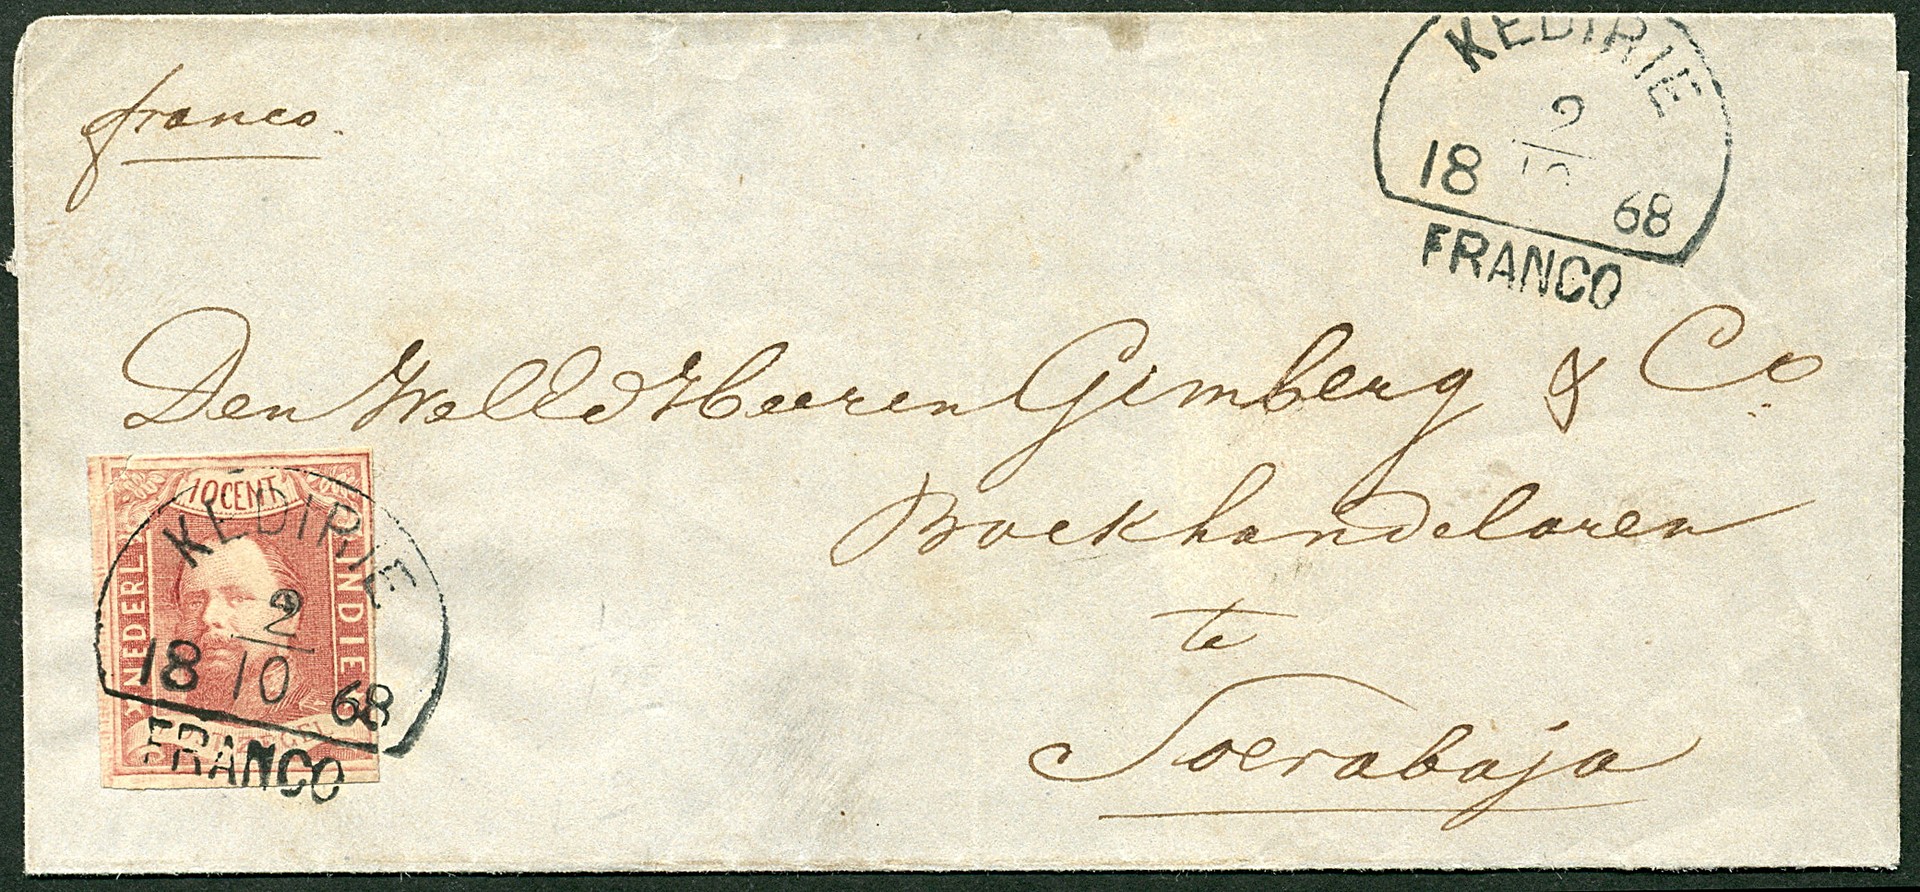 franco.
KEDIRIE
2
10
18 68
FRANCO
Den WelEd Heeren Gimberg & Co
Boekhandelaren
te
Soerabaja
10 CENT
NEDERL
INDIE
POSTZEGEL
KEDIRIE
2
10
18 68
FRANCO